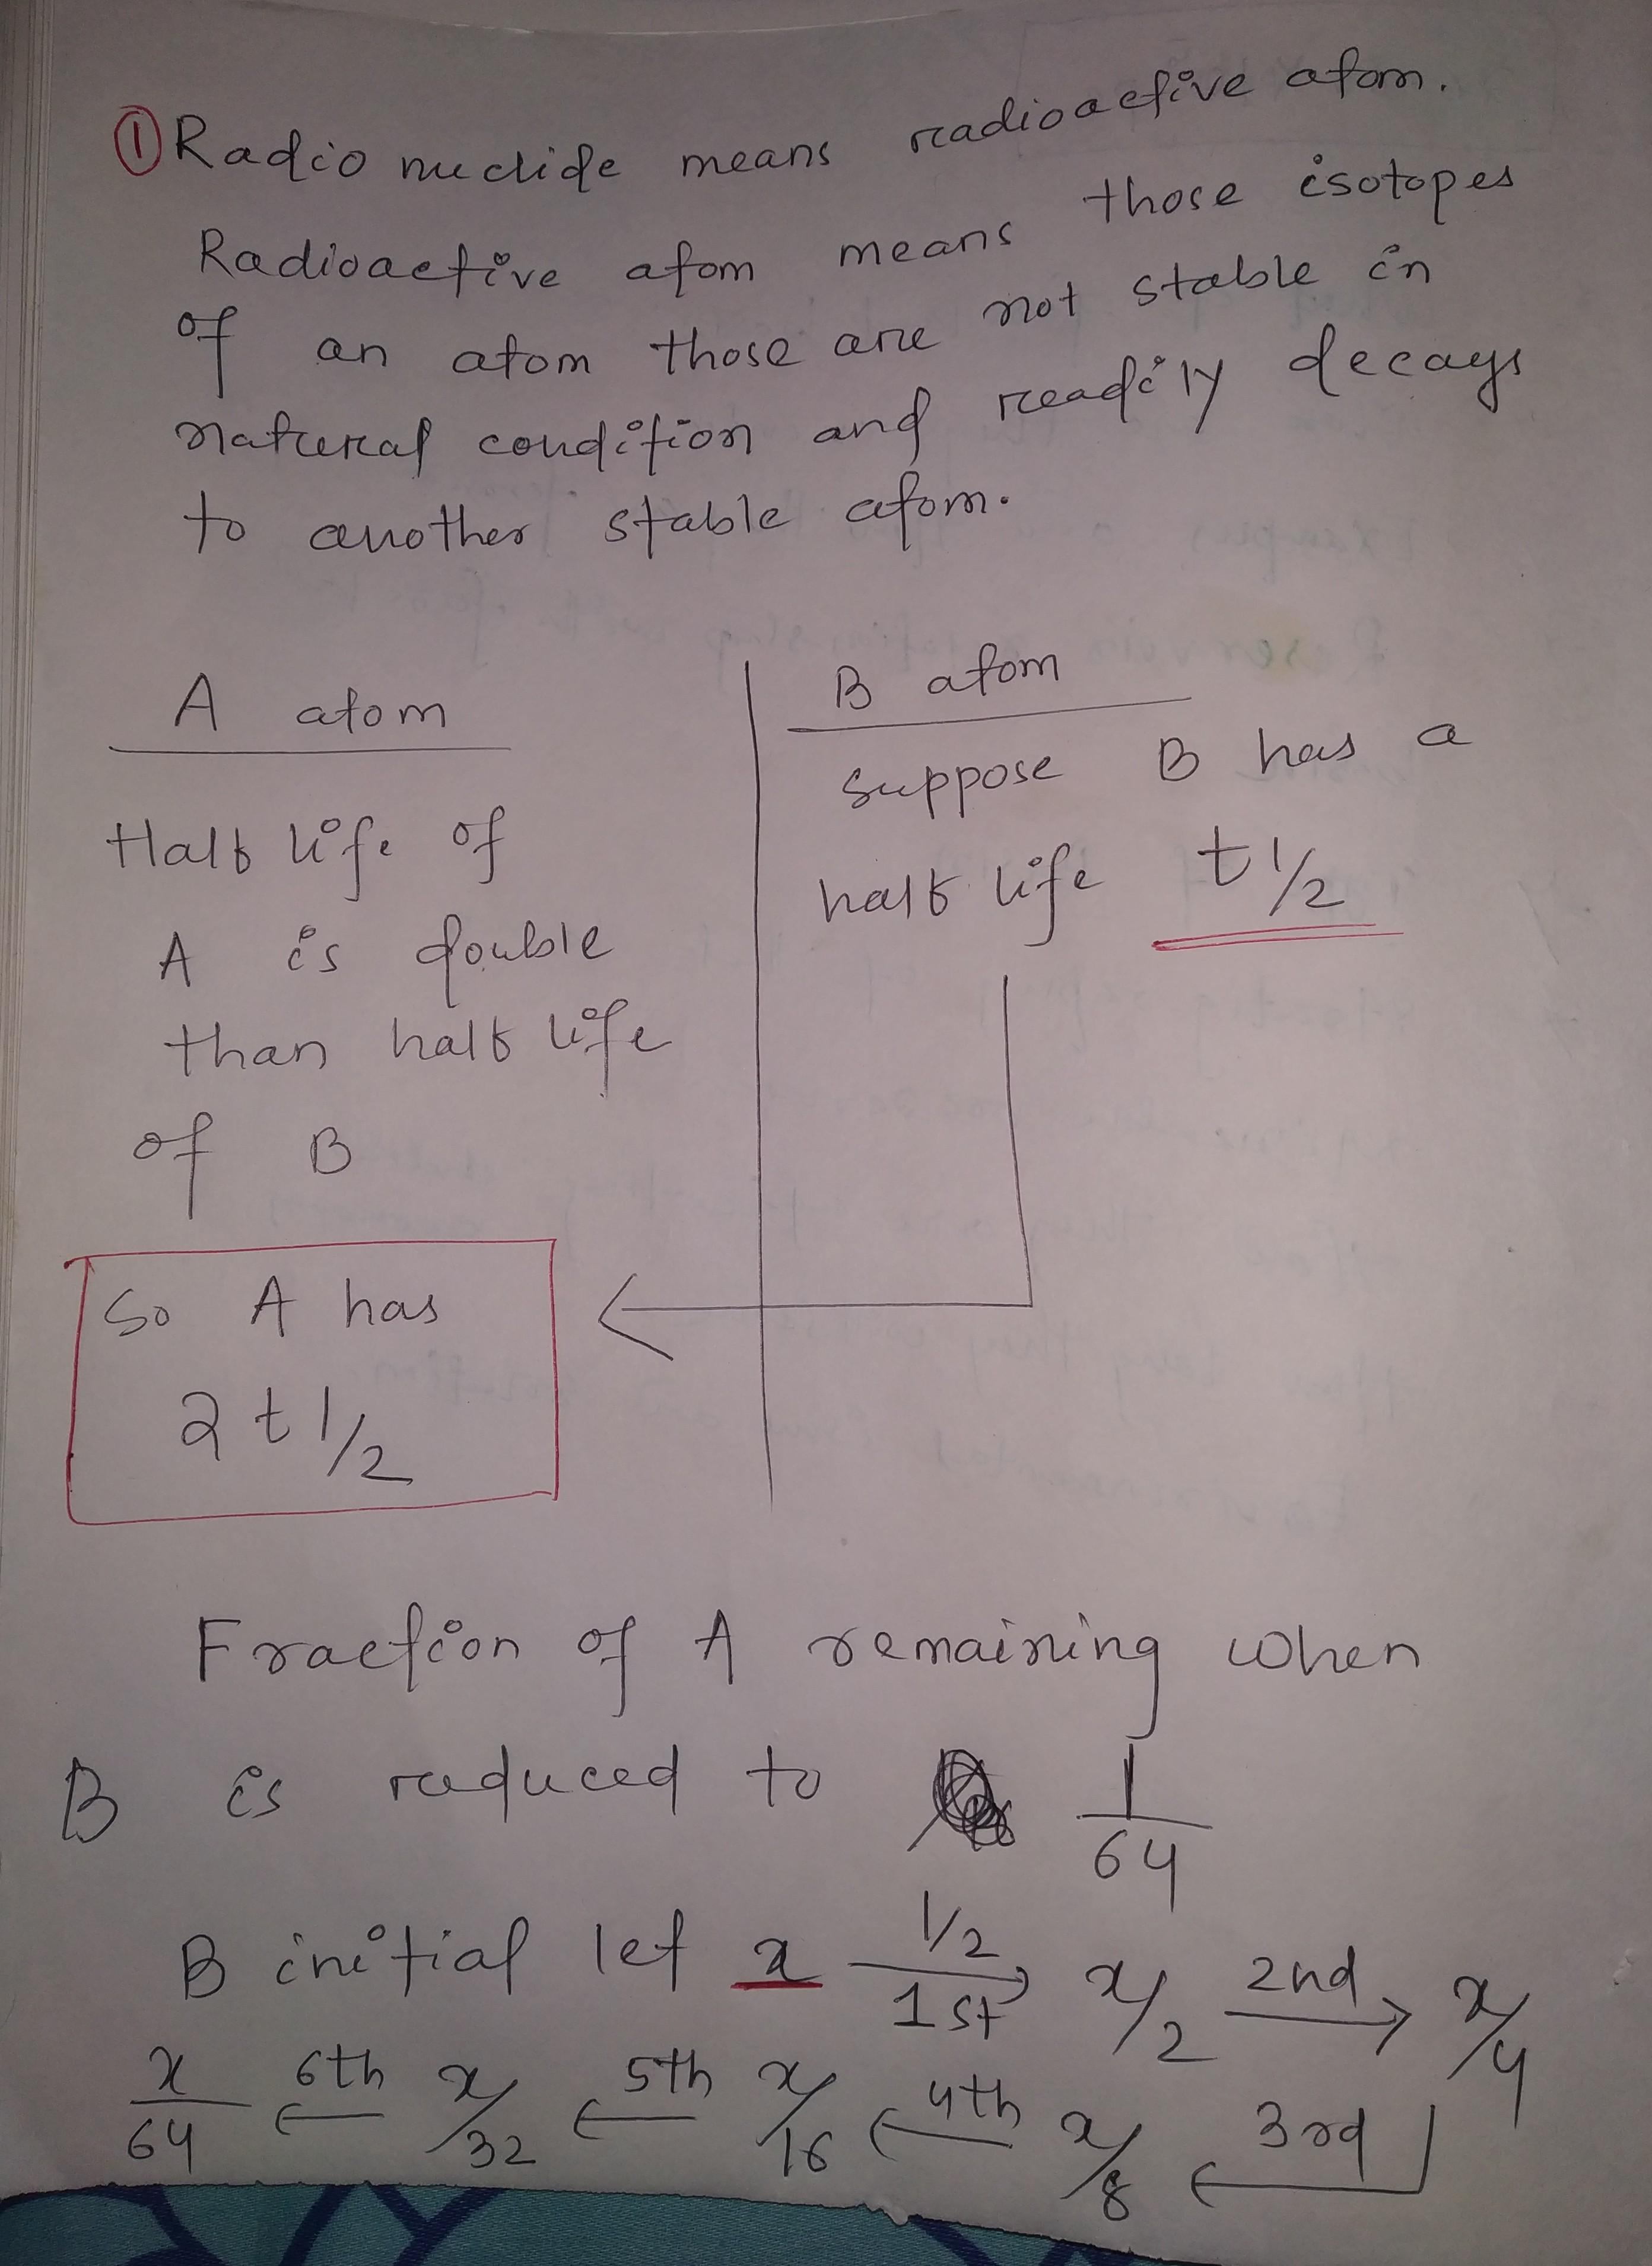 ① Radio nuclide means radioactive atom.
Radioactive atom means those isotopes
of an atom those are not stable in
natural condition and readily decays
to another stable atom.
A atom
Half life of
A is double
than half life
of B
So A has
2 t 1/2
B atom
suppose B has a
half life t 1/2
Fraction of A remaining when
B is reduced to 1/64
B initial let x 1/2 1st → x/2 2nd → x/4
3rd → x/8 4th → x/16 5th → x/32 6th → x/64